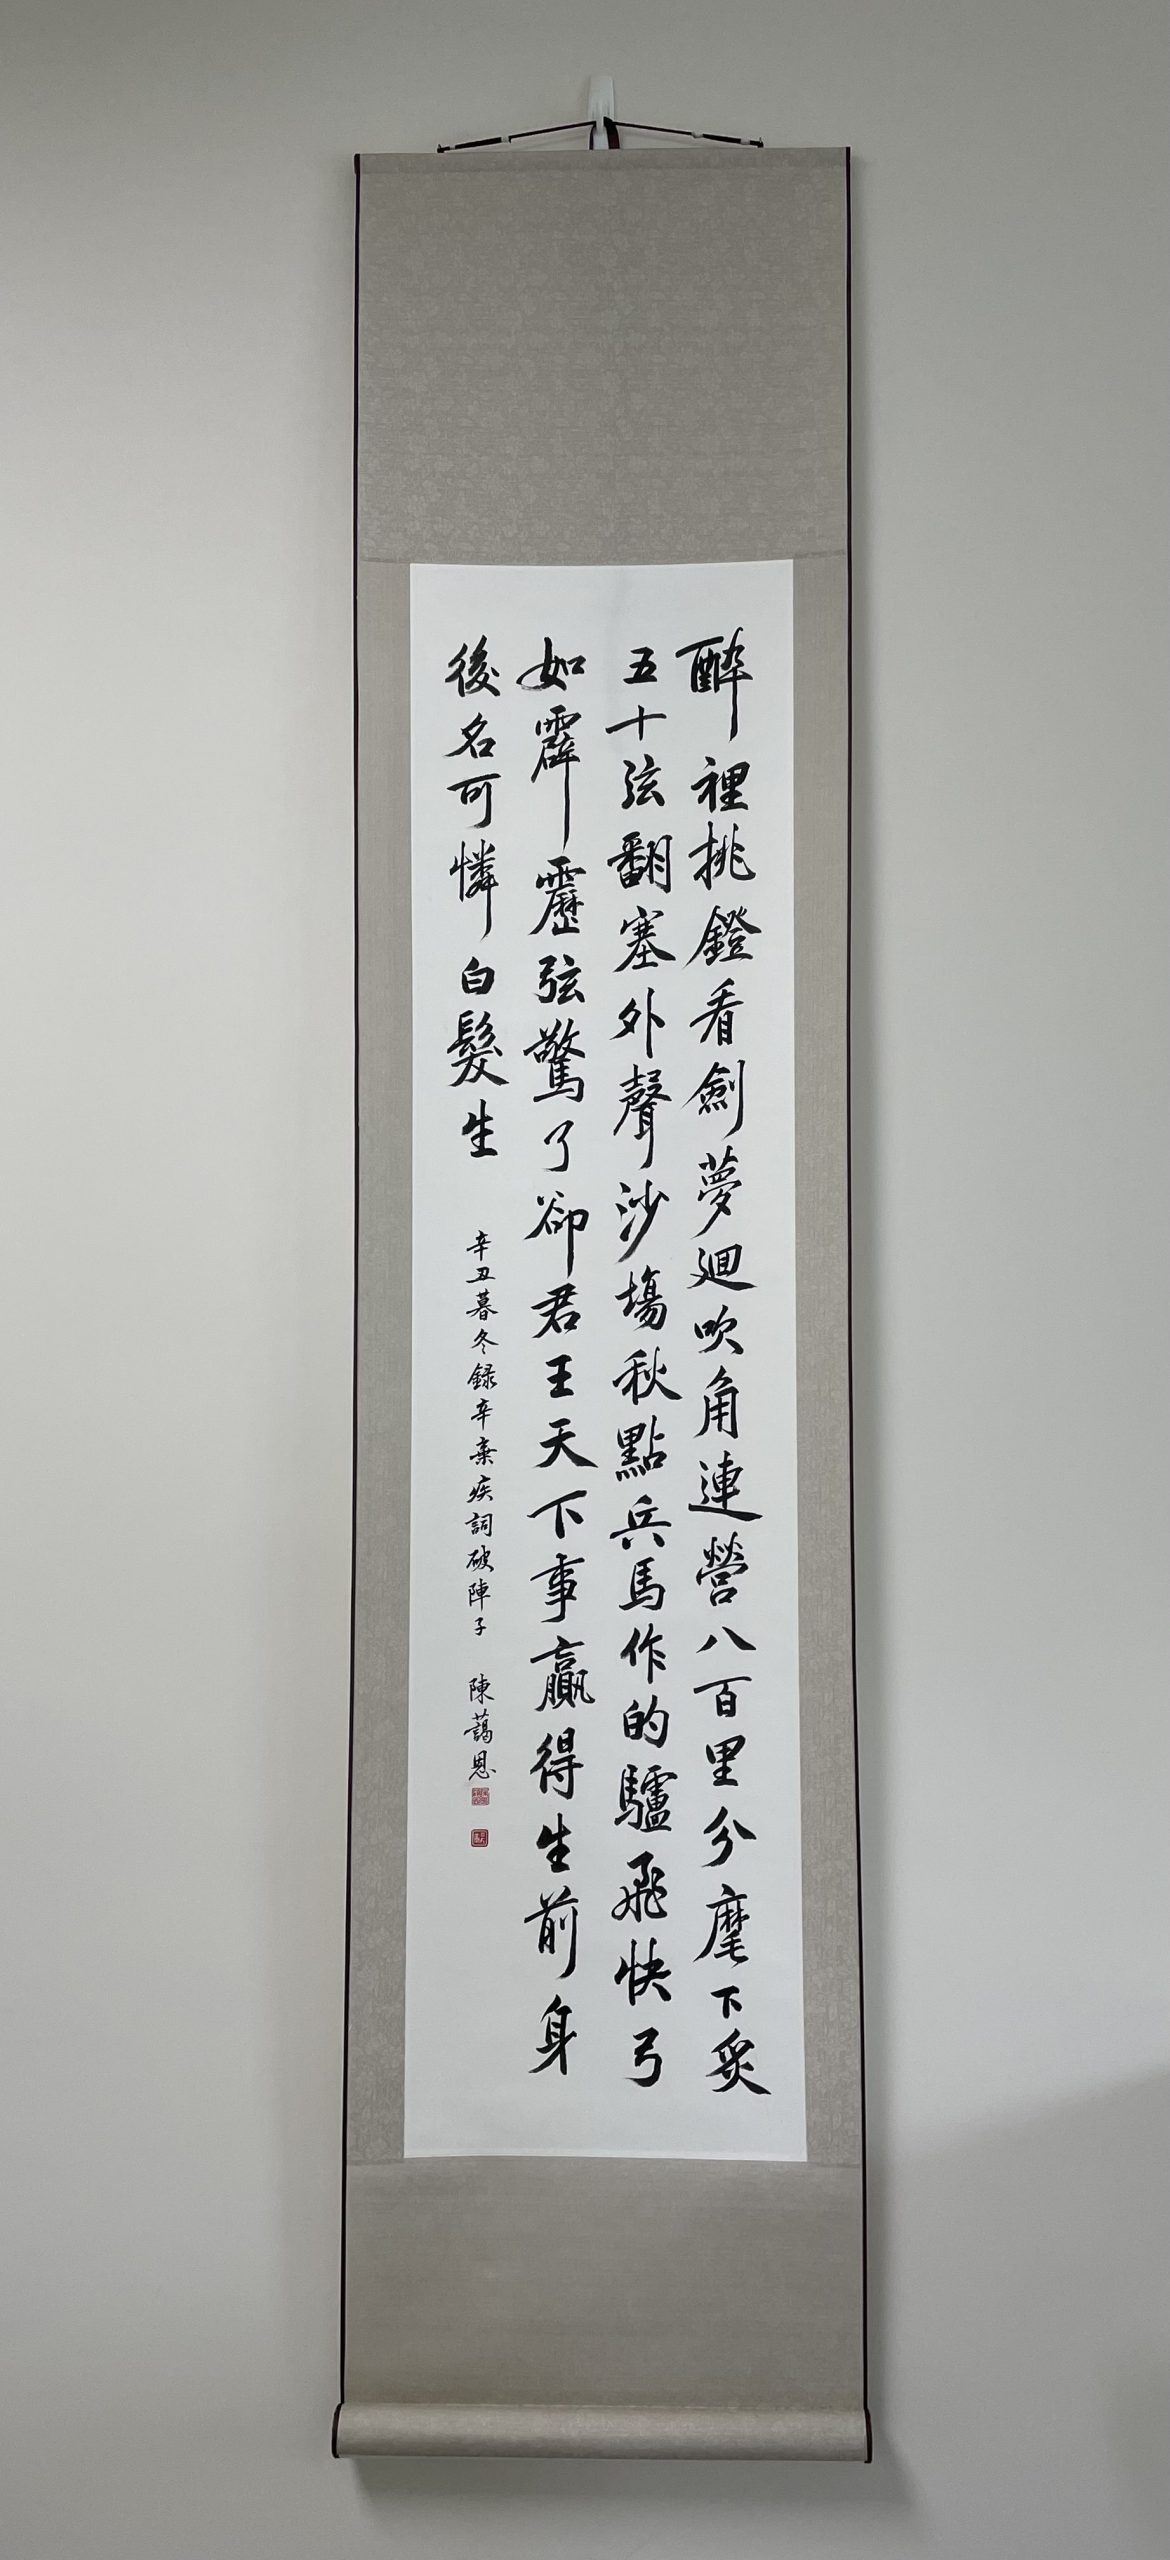 醉裡挑鐙看劍夢廻吹角連營八百里分麾下炙
五十弦翻塞外聲沙場秋點兵馬作的驢飛快弓
如霹靂弦驚了卻君王天下事贏得生前身
後名可憐白髮生
辛丑暮冬錄辛棄疾詞破陣子 陳藹恩